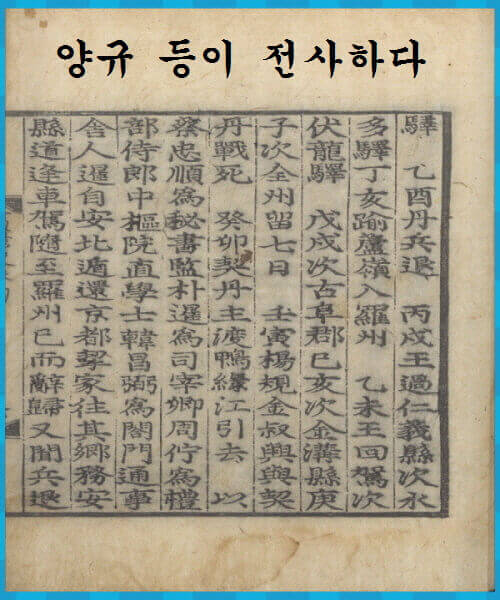 양규 등이 전사하다
驛 乙酉丹兵退 丙戌王過仁義縣次水
多驛丁亥踰蘆嶺入羅州 乙未王回駕次
伏龍驛 戊戌次古阜郡已亥次金溝縣庚
子次全州留七日 壬寅楊規金叔興與契
丹戰死 癸卯契丹主渡鴨綠江引去 以
蔡忠順爲秘書監朴暹爲司宰卿周佇爲禮
部侍郎中樞院直學士韓昌弼爲閤門通事
舍人暹自安北遁還京都挈家往其鄕務安
縣道逢車駕隨至羅州已而辭歸又聞兵退